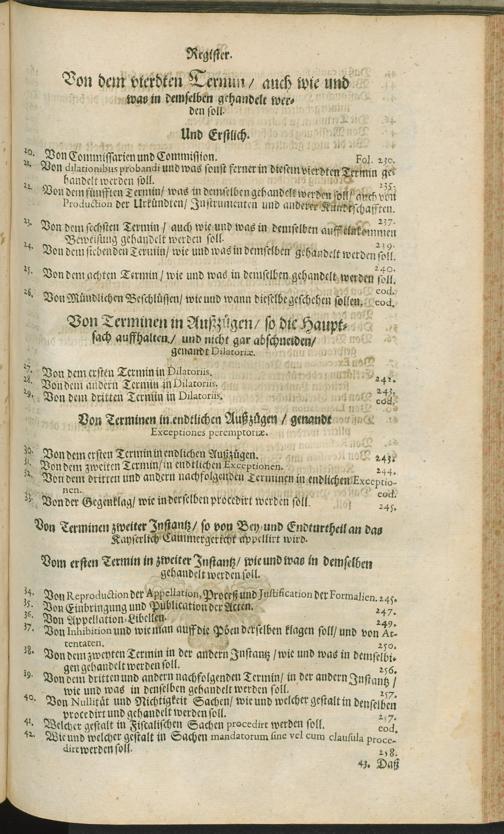 Register.
Von dem vierdten Termin / auch wie und
was in demselben gehandelt wer-
den soll.
Und Erstlich.
20. Von Commissarien und Commission. Fol. 230.
21. Von dilationibus probandi und was sonst ferner in diesem vierdten Termin ge-
handelt werden soll. 235.
22. Von dem fünfften Termin / was in demselben gehandelt werden soll / auch von
Production der Urkündten / Instrumenten und anderer Kundtschafften.
237.
23. Von dem sechsten Termin / auch wie und was in demselben auff einkommen
Beweisung gehandelt werden soll. 239.
24. Von dem siebenden Termin / wie und was in demselben gehandelt werden soll.
240.
25. Von dem achten Termin / wie und was in demselben gehandelt werden soll.
eod.
26. Von Mündlichen Beschlüssen / wie und wann dieselbe geschehen sollen. eod.
Von Terminen in Außzügen / so die Haupt-
sach auffhalten / und nicht gar abschneiden /
genandt Dilatoriæ.
27. Von dem ersten Termin in Dilatoriis.
28. Von dem andern Termin in Dilatoriis. 242.
29. Von dem dritten Termin in Dilatoriis. 243.
eod.
Von Terminen in endtlichen Außzügen / genandt
Exceptiones peremptoriæ.
30. Von dem ersten Termin in endlichen Außzügen. 243.
31. Von dem zweiten Termin / in endtlichen Exceptionen. 244.
32. Von dem dritten und andern nachfolgenden Terminen in endlichen Exceptio-
nen. eod.
33. Von der Gegenklag / wie in derselben procedirt werden soll. 245.
Von Terminen zweiter Instantz / so von Bey und Endturtheil an das
Kayserlich Cammergericht appellirt wird.
Vom ersten Termin in zweiter Instantz / wie und was in demselben
gehandelt werden soll.
34. Von Reproduction der Appellation, Proceß und Justification der Formalien. 245.
35. Von Einbringung und Publication der Acten. 247.
36. Von Appellation-Libellen. 249.
37. Von Inhibition und wie man auff die Pöen derselben klagen soll / und von At-
tentaten. 250.
38. Von dem zweyten Termin in der andern Instantz / wie und was in demselbi-
gen gehandelt werden soll. 256.
39. Von dem dritten und andern nachfolgenden Termin / in der andern Instantz /
wie und was in denselben gehandelt werden soll. 257.
40. Von Nullität und Nichtigkeit Sachen / wie und welcher gestalt in denselben
procedirt und gehandelt werden soll. 257.
41. Welcher gestalt in Fiscalischen Sachen procedirt werden soll. eod.
42. Wie und welcher gestalt in Sachen mandatorum sine vel cum clausula proce-
dirt werden soll. 258.
43. Daß